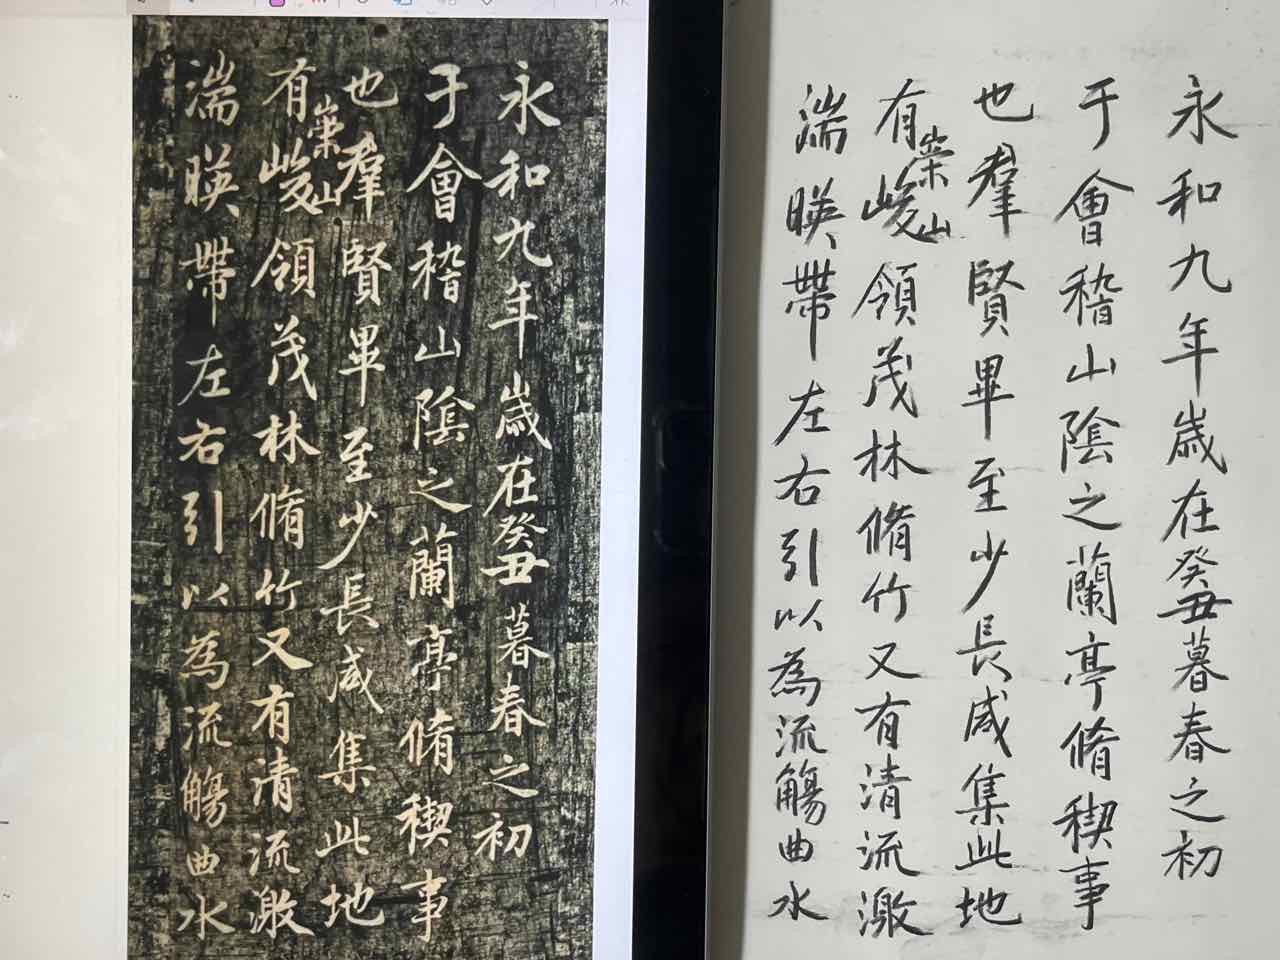 永和九年歲在癸丑暮春之初
于會稽山陰之蘭亭脩稧事
也羣賢畢至少長咸集此地
有崇山峻領茂林脩竹又有清流激
湍暎帶左右引以為流觴曲水
永和九年歲在癸丑暮春之初
于會稽山陰之蘭亭脩稧事
也羣賢畢至少長咸集此地
有崇山峻領茂林脩竹又有清流激
湍暎帶左右引以為流觴曲水